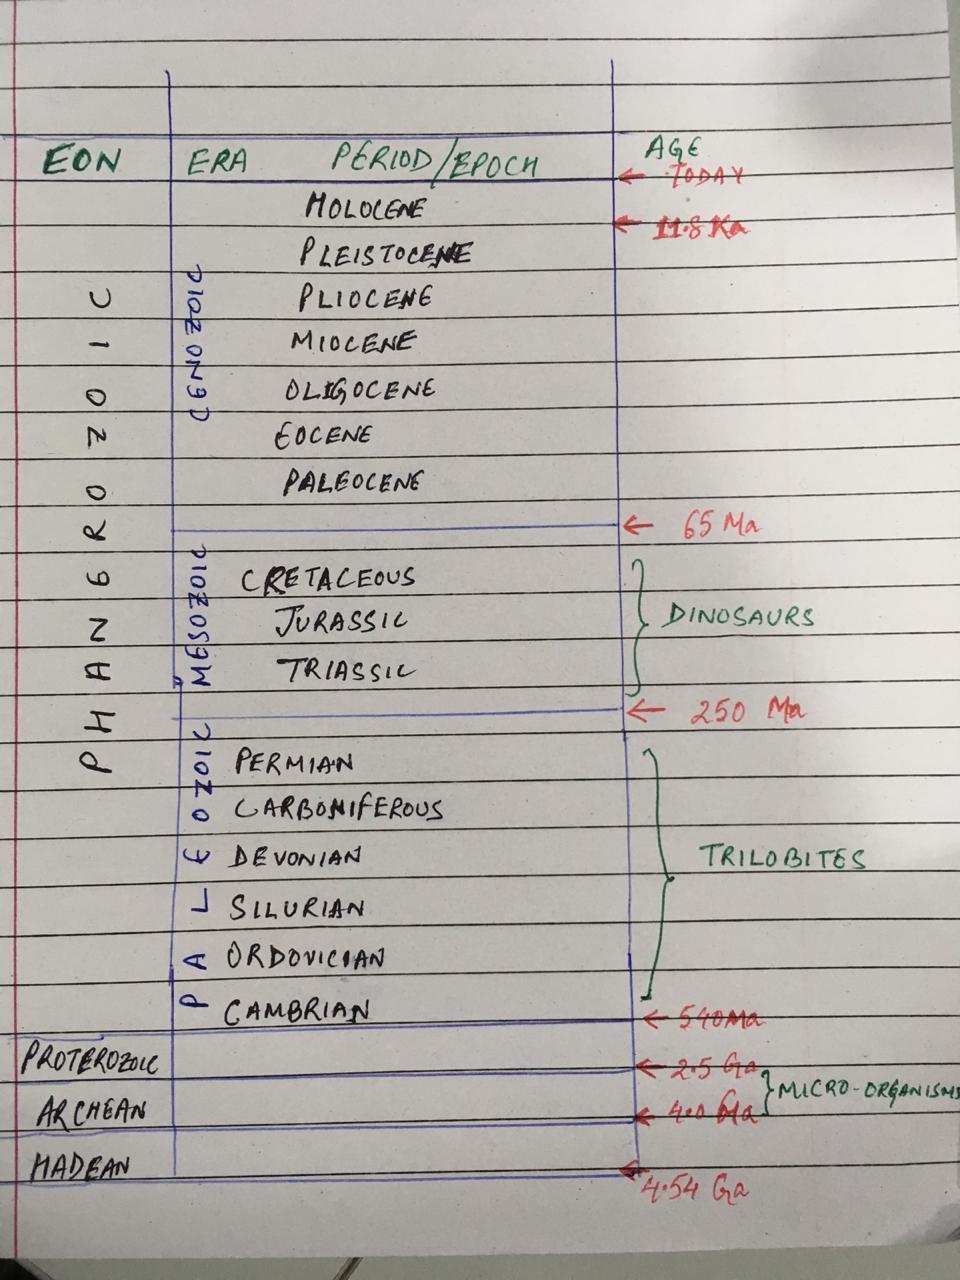 EON ERA PERIOD/EPOCH AGE
← TODAY
HOLOCENE
← 11.8 Ka
PLEISTOCENE
PLIOCENE
MIOCENE
OLIGOCENE
EOCENE
PALEOCENE
CENOZOIC
PHANEROZOIC
← 65 Ma
CRETACEOUS
JURASSIC
TRIASSIC
MESOZOIC
DINOSAURS
← 250 Ma
PERMIAN
CARBONIFEROUS
DEVONIAN
SILURIAN
ORDOVICIAN
CAMBRIAN
PALEOZOIC
TRILOBITES
← 540 Ma
PROTEROZOIC ← 2.5 Ga
MICRO-ORGANISMS
ARCHEAN ← 4.0
HADEAN
← 4.54 Ga